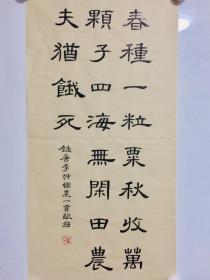 春種一粒粟秋收萬
顆子四海無閑田農
夫猶餓死
錄唐李紳憫農一首